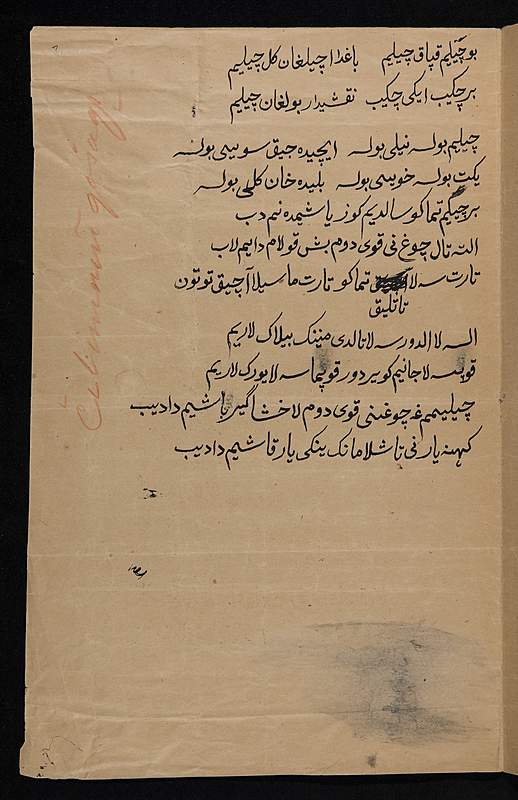 بو چیلیم قپاق چیلیم باغدا چیلغان کل چیلیم
بر چکیب ایکی چکیب نقشیدار بولغان چیلیم
چیلیم بوله نیلی بوله ایچیده جیق سویسی بوله
یکت بوله خویسی بوله بلیده خان کلی بوله
بر چیکیم تماکو سالدیم کوز یاشیمده نم دب
الته تال چوغ نی قوی دوم بش قولام دا ییم لاب
تارت سه لا تماکو تارت ماسیلا آچیق توتون
تاتلیق
السه لا الدور سه لا تالدی مینینک بیلاک لاریم
قویسه لا جانیم کویر دور قویما سه لا یورک لاریم
چیلیمیم غه چوغنی قوی دوم لاخشا کیر باشیم دا دیب
کهنه یارنی تاشلامانک ینکی یار قاشیم دا دیب
Čilimning qošaqi